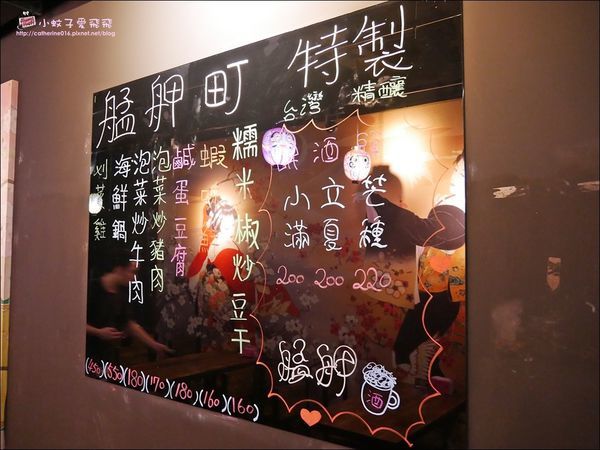 小蚊子愛飛飛
http://catherine016.pixnet.net/blog
艋舺町 特製
台灣 精釀
酒
芒種 220
立夏 200
小滿 200
艋舺
酒
糯米椒炒豆干 (160)
蝦 (160)
鹹蛋豆腐 (180)
泡菜炒豬肉 (170)
泡菜炒牛肉 (180)
海鮮鍋 (550)
雞 (450)